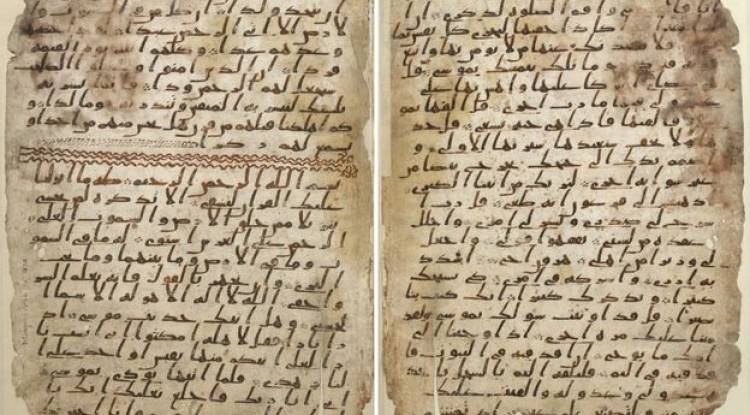 ولدا ان كل من في السموت و
الارض الا اتي الرحمن عبدا لقد
وعدهم عدا وكلهم اتيه يوم القيمه
فردا ان الذين امنوا وعملوا الصلحت
سيجعل لهم الرحمن ودا فانما يسرنه
بلسنك لتبشر به المتقين وتنذر به قوما لدا و
كم اهلكنا قبلهم من قرن هل تحس منهم من احد او
تسمع لهم ركزا
بسم الله الرحمن الرحيم طه ما انزلنا
عليك القران لتشقى الا تذكره لمن يخشى
تنزيلا ممن خلق الارض والسموت العلى
الرحمن على العرش استوى له ما في السمو
ت وما في الارض وما بينهما وما تحت
الثرى وان تجهر بالقول فانه يعلم السر
واخفى الله لا اله الا هو له الاسما ا
لحسنى وهل اتيك حديث موسى اذ
را نارا فقال لاهله امكثوا اني انست نا
را لعلي اتيكم منها بقبس او اجد على ا
لنار هدى فلما اتيها نودي يموسى
اني انا ربك فاخلع نعليك انك با
انا واقم الصلوه لذكري ان ا
اكاد اخفيها لتجزى كل نفس بما
فلا يصدنك عنها من لا يومن بها واتبع
فتردى وما تلك بيمينك يموسى قل
عصاي عليها واهش بها على
ولي فيها مارب اخرى قل القها يمو
سى فالقيها فاذا هي حيه تسعى قل خذ
ها ولا تخف سنعيدها سيرتها الاولى و
اضمم يدك الى جنحك تخرج بيضا من
غير سو ايه اخرى لنريك من ايتنا الكبرى
اذهب الى فرعون انه طغى قل رب ا
شرح لي صدري ويسر لي امري واحلل
عقده من لسني يفقهوا قولي واجعل
لي وزيرا من اهلي هرون اخي اشدد
به ازري واشركه في امري كي نسبحك
كثيرا ونذكرك كثيرا انك كنت بنا
بصيرا قل قد اوتيت سولك يموسى ولقد
مننا عليك مره اخرى اذ اوحينا الى
امك ما يوحى ان اقذفيه في التبوت فا
قذفيه في اليم فليلقه اليم بالسحل يا
خذه عدو لي وعدو له والقيت عليك